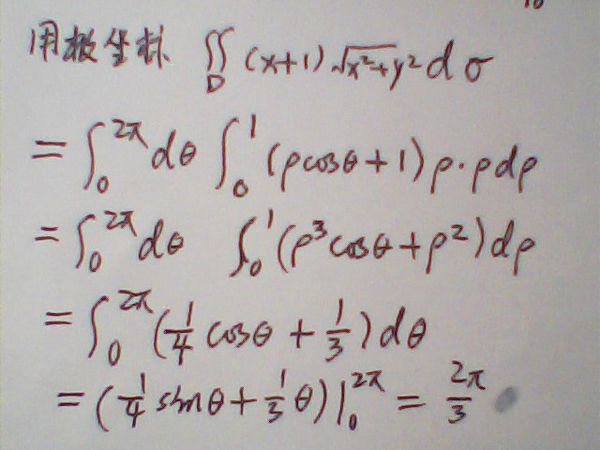 用极坐标 ∬_D (x+1)√(x²+y²) dσ
= ∫₀^{2π} dθ ∫₀¹ (ρcosθ+1)ρ·ρdρ
= ∫₀^{2π} dθ ∫₀¹ (ρ³cosθ+ρ²)dρ
= ∫₀^{2π} (1/4 cosθ + 1/3)dθ
= (1/4 sinθ + 1/3 θ)|₀^{2π} = 2π/3